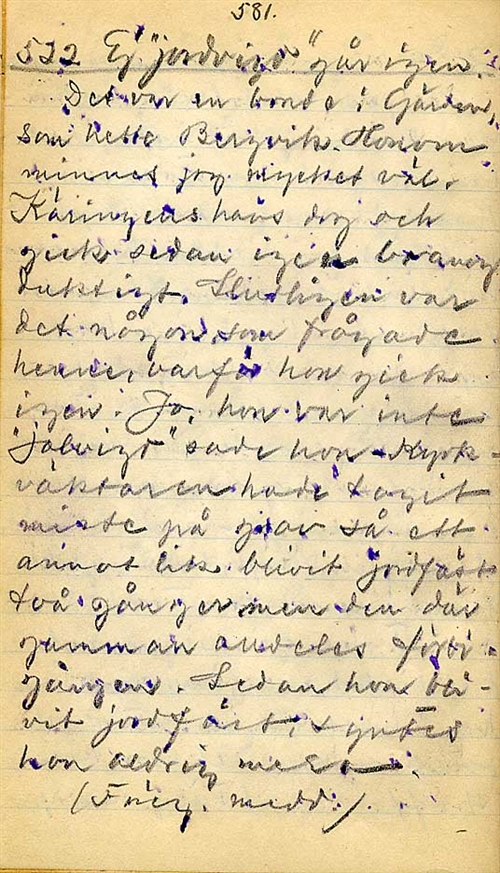 581.
522 Ej "jordvigd" går igen.
Det var en bonde i Gården,
som hette Bergvik. Honom
minnes jag mycket väl.
Käringen hans dog och
gick sedan igen
duktigt. Slutligen var
det någon, som frågade
henne, varför hon gick
igen. Jo, hon var inte
"jolvigd" sade hon. Kyrk-
väktaren hade tagit
miste på grav så ett
annat lik blivit jordfäst
två gånger men den där
gumman alldeles förbi-
gången. Sedan hon bli-
vit jordfäst, syntes
hon aldrig mera.
(Föreg. medd.).